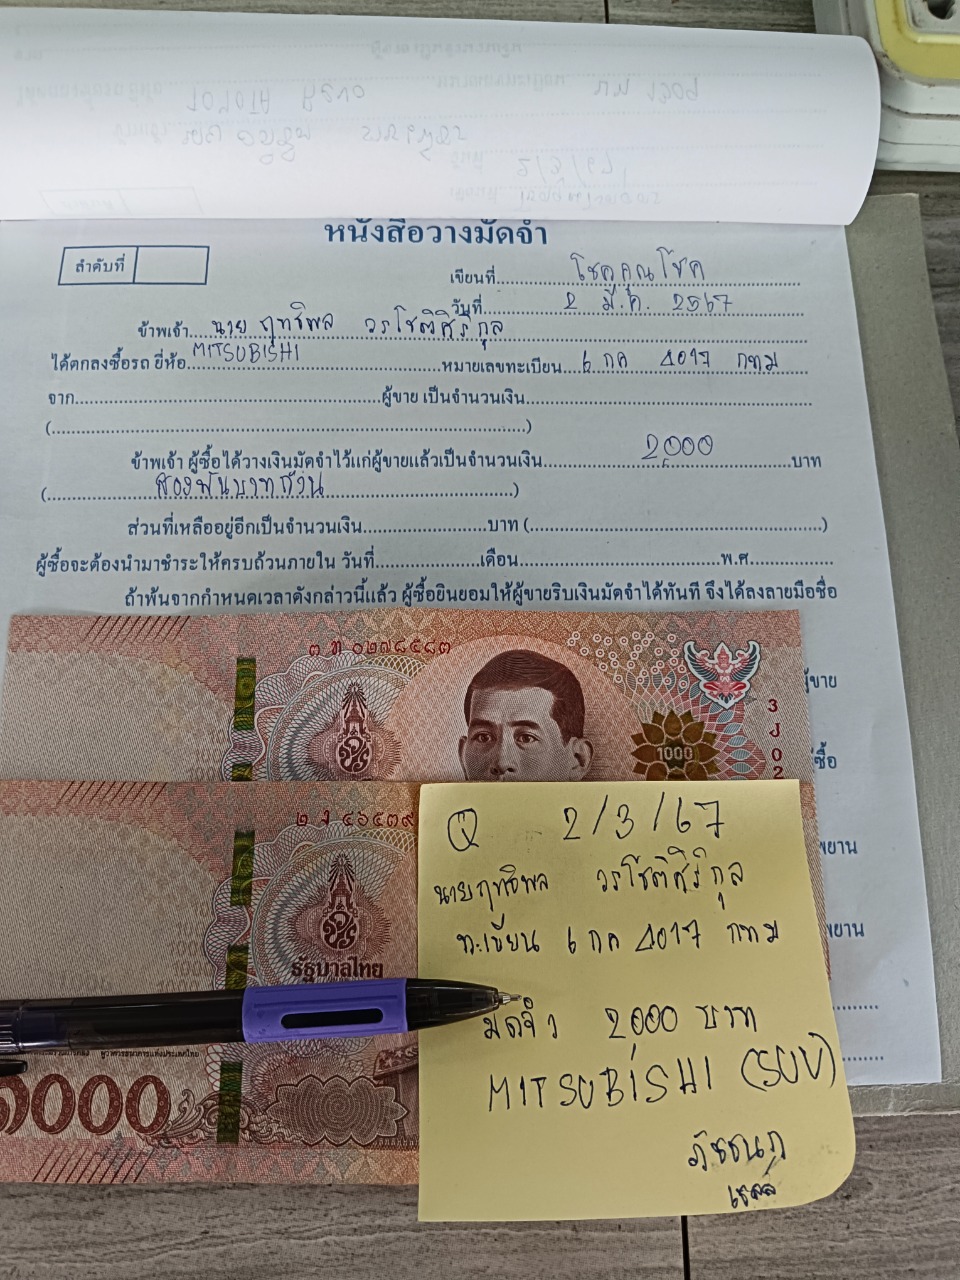 หนังสือวางมัดจำ
ลำดับที่
เขียนที่ โชคคูณโชค
วันที่ 2 มี.ค. 2567
ข้าพเจ้า นาย ฤทธิพล วรโชติศิริกุล
ได้ตกลงซื้อรถ ยี่ห้อ MITSUBISHI หมายเลขทะเบียน 6 กค 4017 กทม
จาก ผู้ขาย เป็นจำนวนเงิน
( )
ข้าพเจ้า ผู้ซื้อได้วางเงินมัดจำไว้แก่ผู้ขายแล้วเป็นจำนวนเงิน 2000 บาท
( สองพันบาทถ้วน )
ส่วนที่เหลืออยู่อีกเป็นจำนวนเงิน บาท ( )
ผู้ซื้อจะต้องนำมาชำระให้ครบถ้วนภายใน วันที่ เดือน พ.ศ.
ถ้าพ้นจากกำหนดเวลาดังกล่าวนี้แล้ว ผู้ซื้อยินยอมให้ผู้ขายริบเงินมัดจำได้ทันที จึงได้ลงลายมือชื่อ
ผู้ขาย
๓ ท ๐๒๗๘๕๘๓
1000
2/3/67
นายฤทธิพล วรโชติศิริกุล
ทะเบียน 6 กค 4017 กทม
มัดจำ 2000 บาท
MITSUBISHI (SUV)
ภัชชนภ
เซลล์
๒ ง ๔๖๕๓๙
รัฐบาลไทย
๑๐๐๐